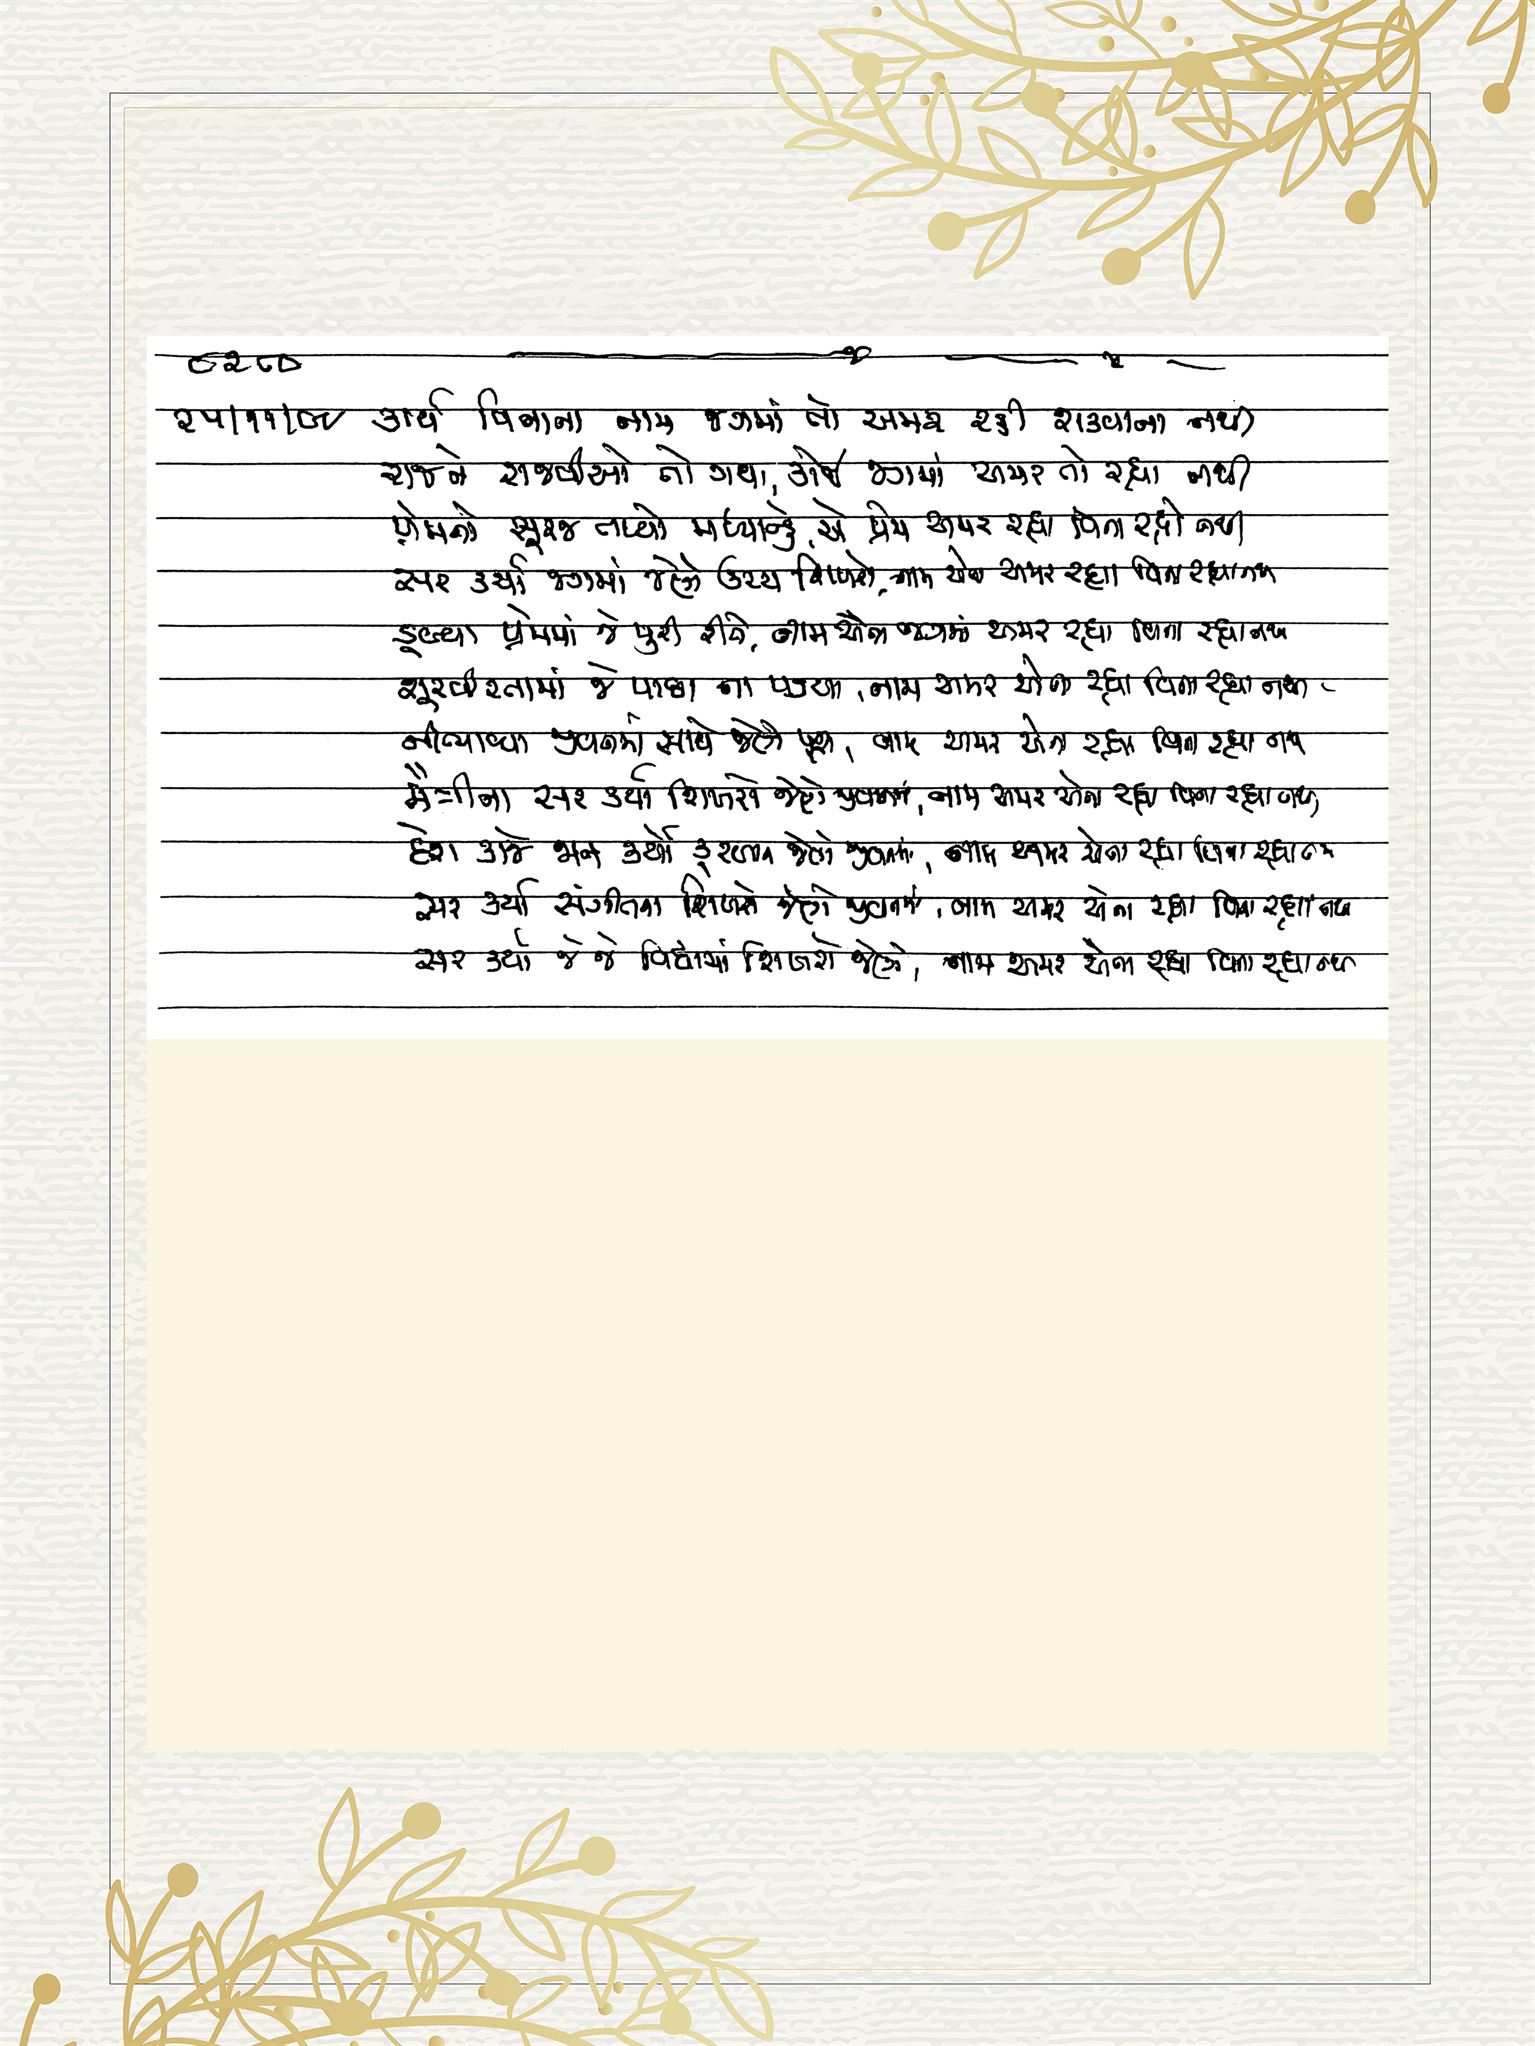 ૭૨૮૦
૨૫/૧૧/૭૮ કાર્ય વિનાના નામ જગમાં તો અમર રહી શકવાના નથી
રાજને રાજવીઓ તો ગયા, કોઈ જગમાં અમર તો રહ્યા નથી
પ્રેમનો સૂરજ તપ્યો મધ્યાન્હે, એ પ્રેમ અમર રહ્યા વિના રહ્યો નથી
સર કર્યા જગમાં જેણે ઉચ્ચ શિખરો, નામ એના અમર રહ્યા વિના રહ્યા નથી
ડૂબ્યા પ્રેમમાં જે પુરી રીતે, નામ એના જગમાં અમર રહ્યા વિના રહ્યા નથી
શૂરવીરતામાં જે પાછા ના પડયા, નામ અમર એના રહ્યા વિના રહ્યા નથી
જીવનમાં સાચે જેણે, નામ અમર એના રહ્યા વિના રહ્યા નથી
મૈત્રીના સર કર્યા શિખરો જેણે જીવનમાં, નામ અમર એના રહ્યા વિના રહ્યા નથી
દેશ કાજે જાન કર્યો કુરબાન જેણે જીવનમાં, નામ અમર એના રહ્યા વિના રહ્યા નથી
સર કર્યા સંગીતના શિખરો જેણે જીવનમાં, નામ અમર એના રહ્યા વિના રહ્યા નથી
સર કર્યા જે જે વિદ્યામાં શિખરો જેણે, નામ અમર એના રહ્યા વિના રહ્યા નથી